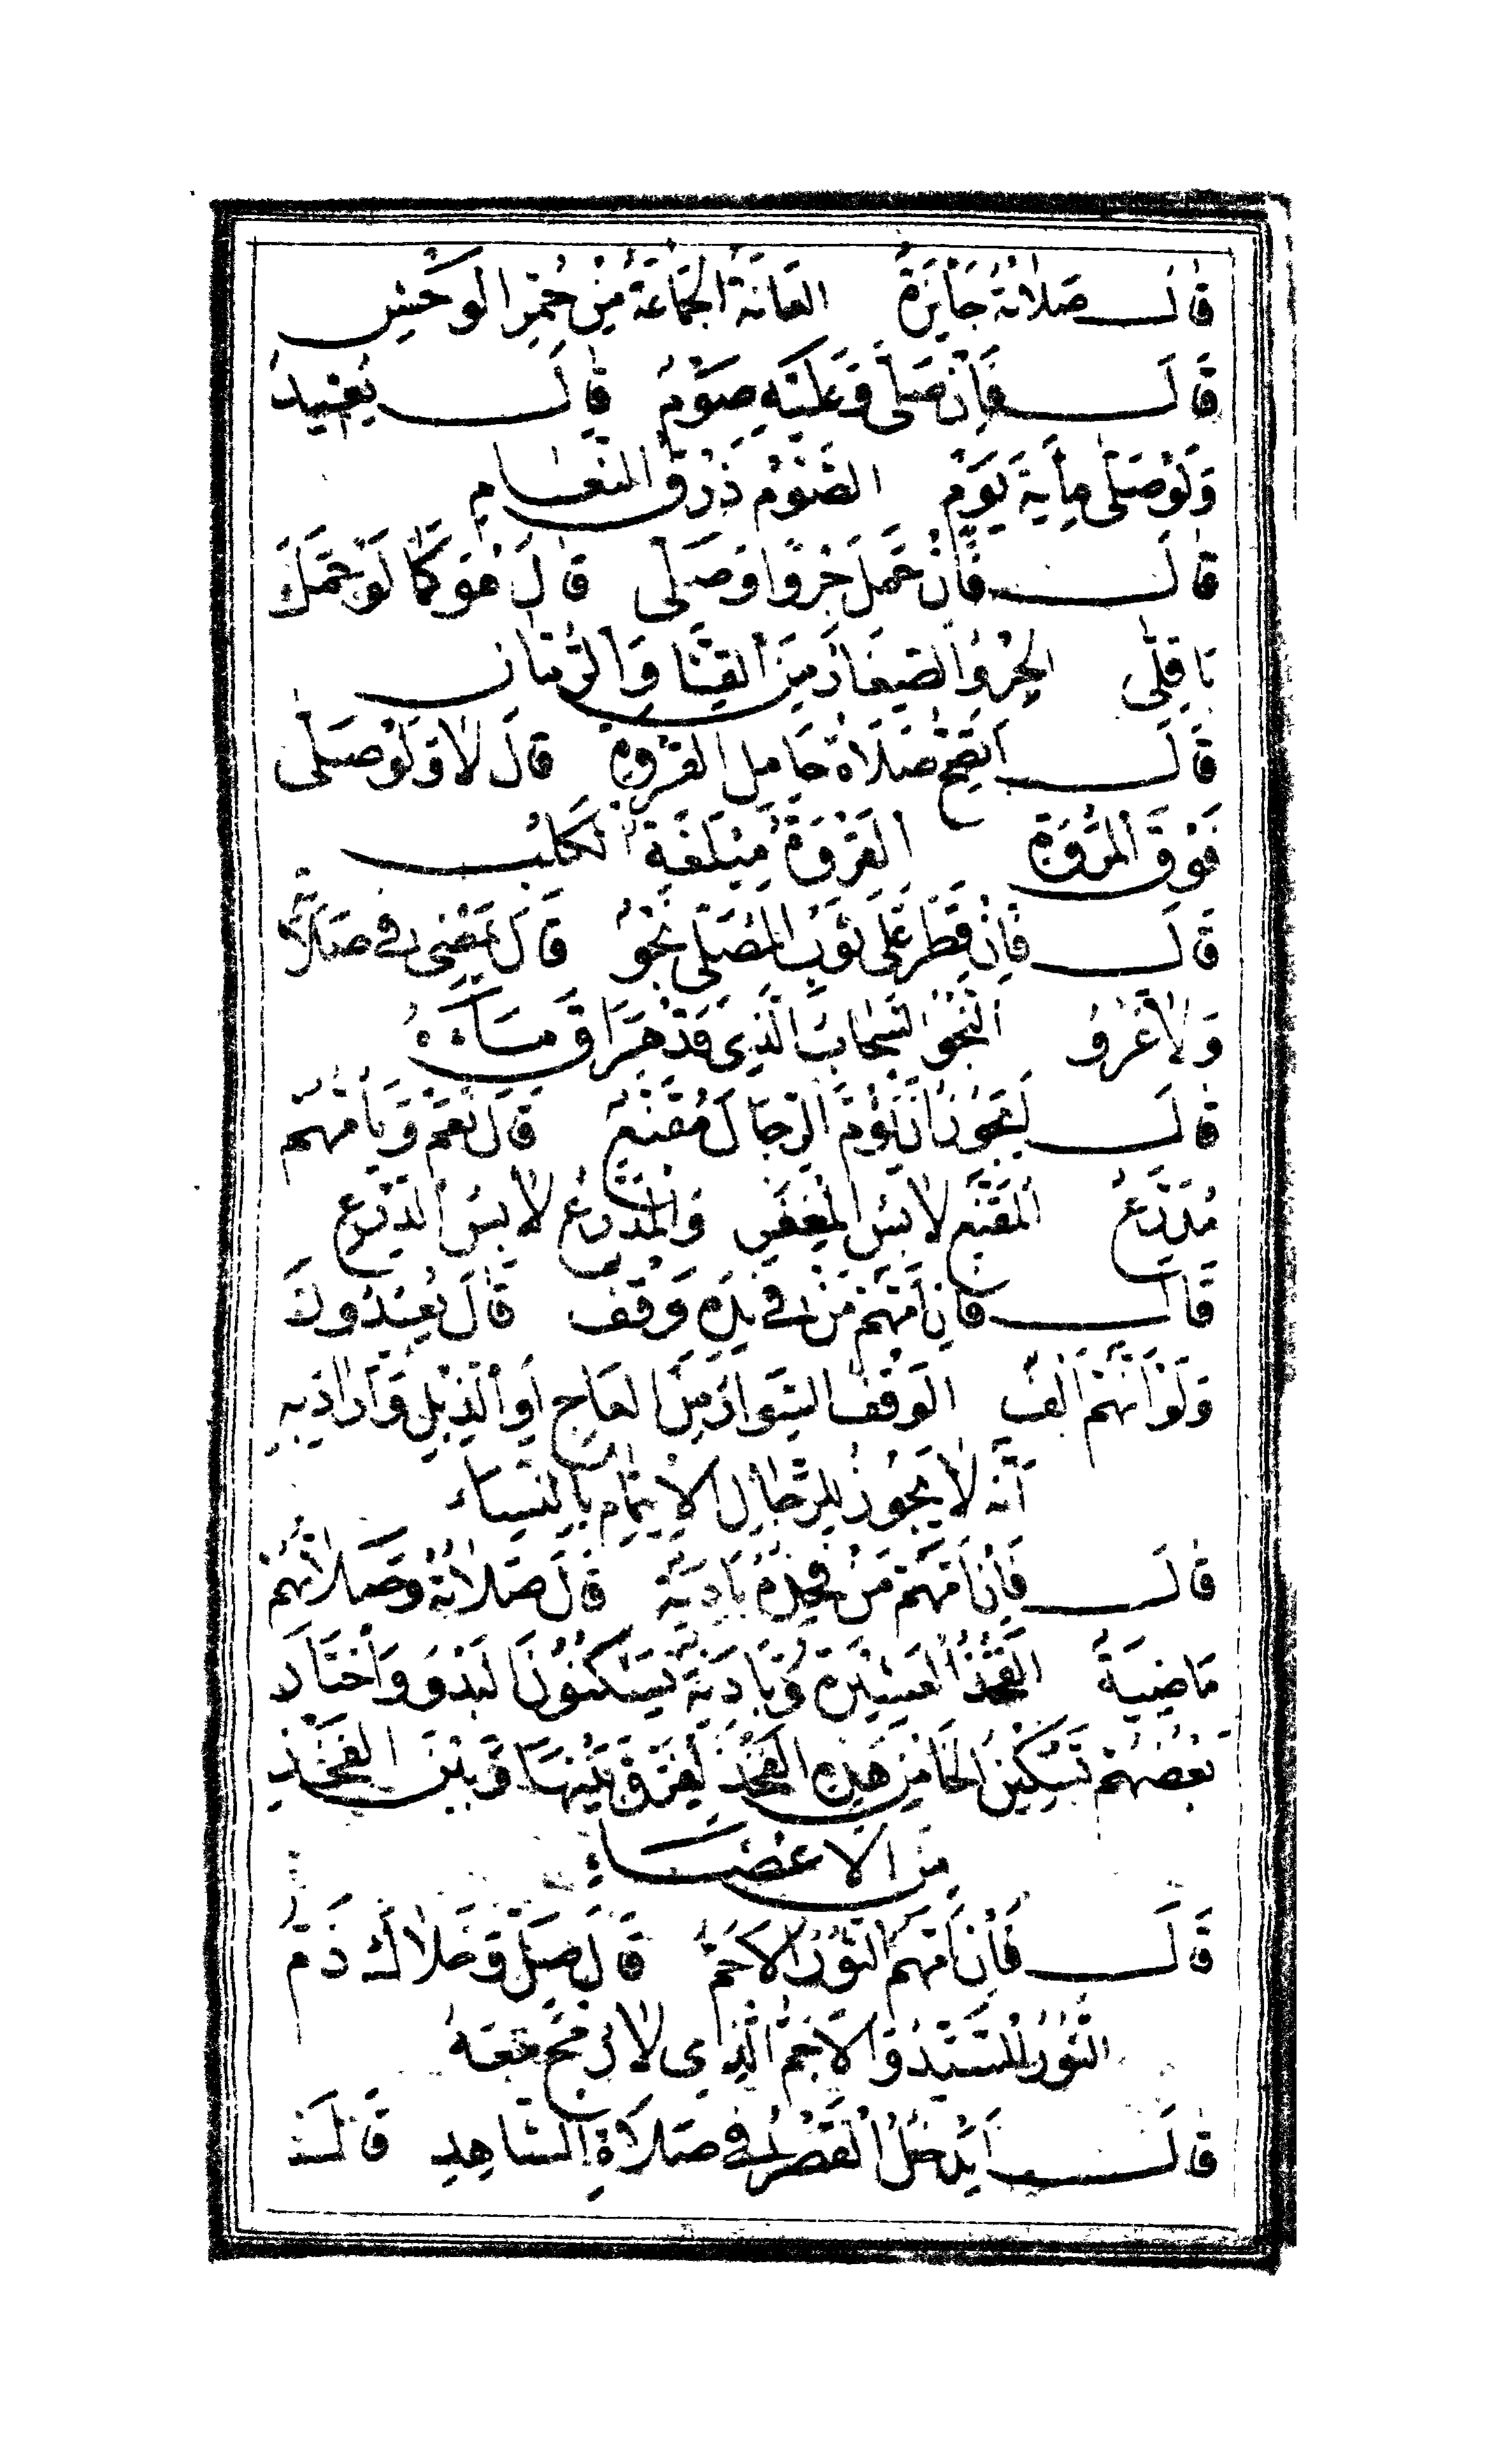 قَالَ صَلَاتُهُ جَائِزَةٌ الْعَانَةُ الْجَمَاعَةُ مِنْ حُمُرِ الْوَحْشِ
قَالَ فَإِنْ صَلَّى وَعَلَيْهِ صَوْمٌ قَالَ يُعِيدُ
وَلَوْ صَلَّى مِايَةَ يَوْمٍ الصَّوْمُ ذَرْقُ النَّعَامِ
قَالَ فَإِنْ حَمَلَ جِرْوًا وَصَلَّى قَالَ هُوَ كَمَا لَوْ حَمَلَ
بَاقِلَّى الْجِرْوُ الصِّغَارُ مِنَ الْقِثَّا وَالرُّمَّانِ
قَالَ اَتَصِحُّ صَلَاةُ حَامِلِ الْقَرْوَةِ قَالَ لَا وَلَوْ صَلَّى
فَوْقَ الْمَرْوَةِ الْقَرْوَةُ مِيْلَغَةُ الْكَلْبِ
قَالَ فَإِنْ قَطَرَ عَلَى ثَوْبِ الْمُصَلِّي نَجْوٌ قَالَ يَمْضِي فِي صَلَاتِهِ
وَلَا غَرْوَ النَّجْوُ السَّحَابُ الَّذِي قَدْ هَرَاقَ مَاءَهُ
قَالَ اَيَجُوزُ اَنْ يَؤُمَّ الرِّجَالَ مُقَنَّعٌ قَالَ نَعَمْ وَيَأُمُّهُمْ
مُدَرَّعٌ الْمُقَنَّعُ لَابِسُ الْمِغْفَرِ وَالْمُدَرَّعُ لَابِسُ الدِّرْعِ
قَالَ فَإِنْ اَمَّهُمْ مَنْ فِي يَدِهِ وَقْفٌ قَالَ يُعِيدُونَ
وَلَوْ اَنَّهُمْ اَلْفٌ الْوَقْفُ السِّوَارُ مِنَ الْعَاجِ اَوِ الذَّبْلِ وَاَرَادَ بِهِ
اَنَّهُ لَا يَجُوزُ لِلرِّجَالِ الْاِيتِمَامُ بِالنِّسَاءِ
قَالَ فَإِنْ اَمَّهُمْ مَنْ فَخِذُهُ بَادِيَةٌ قَالَ صَلَاتُهُ وَصَلَاتُهُمْ
مَاضِيَةٌ الْفَخِذُ الْعَشِيرَةُ وَبَادِيَةٌ يَسْكُنُونَ الْبَدْوَ وَاخْتَارَ
بَعْضُهُمْ تَسْكِينَ الْخَا مِنْ هَذِهِ الْفَخْذِ لِيُفَرِّقَ بَيْنَهَا وَبَيْنَ الْفَخِذِ
مِنَ الْاَعْضَاءِ
قَالَ فَإِنْ اَمَّهُمُ الثَّوْرُ الْاَجَمُّ قَالَ صَلِّ وَخَلَاكَ ذَمٌّ
الثَّوْرُ السَّيِّدُ وَالْاَجَمُّ الَّذِي لَا رُمْحَ مَعَهُ
قَالَ اَيَدْخُلُ الْقَصْرُ فِي صَلَاةِ الشَّاهِدِ قَالَ